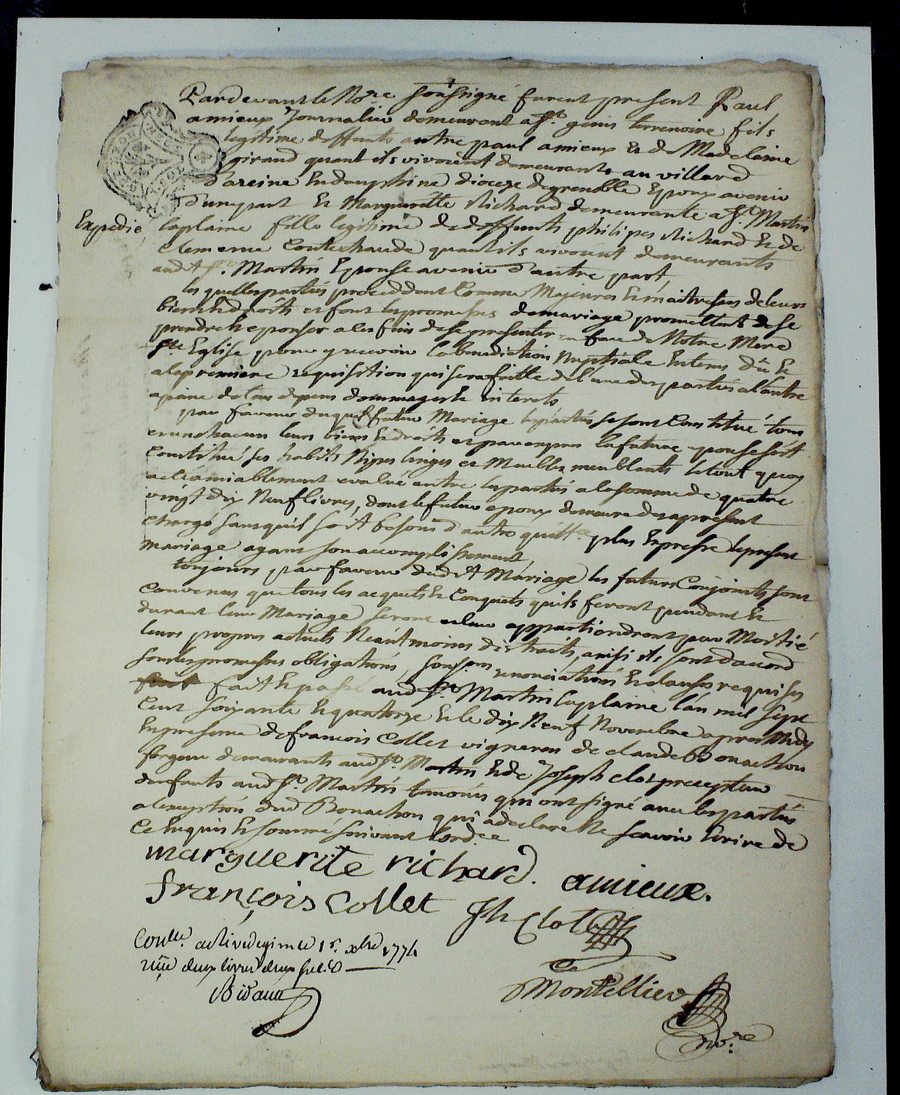 Pardevant le No.re soussigné furent present Paul
amieux Journalier demeurant a St. genis terrenoire fils
legitime deffunts autre paul amieux et de Madelaine
giraud quant ils vivoient demeurants au villard
D'areine en dauphine dioceze de grenoble Epoux avenir
D'une part Et Marguerite Richard demeurante a St. Martin
Expedié
laplaine fille legitime de deffunts philipes Richard Et de
Clemence quand ils vivoient demeurants
aud. St. Martin Epouse avenir d'autre part
lesquelles parties proceddant Comme Majeures Et maitresses de leurs
biens Et droits ont fait les promesses de mariage promettant de se
prendre et eponser a les fins de se presenter en face de Notre Mere
Ste Eglise pour y recevoir la benediction Nuptiale En tems dû Et
a la premiere requisition qui sera faitte de l'une des parties a l'autre
a peine de tous depens dommages et interets
par faveur duquel futur Mariage les parties se sont Constitué tous
et un chacun leurs biens Et droits et par expres la future epouse s'est
Constitué ses habits Nipes linges et Meubles meublants le tout quoy
a eté amiablement evalué entre les parties a la somme de quatre
vingt dix Neuf livres, dont le futur epoux demeure des apresent
chargé sans quil soit besoin d'autre quitt.ce plus Expresse le present
mariage ayant son accomplissement
toujours par faveur dud. Mariage les futurs Conjoints sont
convenus que tous les acquets Et Conquets quils feront pendant Et
durant leur Mariage seront et leur appartiendront par Moitié
leurs propres actuels Neantmoins distraits, ainsi ils sont d'acord
sous les promesses obligations, renonciations Et clauses requises
fait Et passé aud. St. Martin laplaine l'an mil sept
Cent soixante Et quatorze Et le dix Neuf Novembre apres Midy
En presence de françois Collet vigneron de claude Bonachon
forgeur demeurants aud. St. Martin Et de Joseph clot precepteur
d'enfants aud. St. Martin temoins qui ont signé avec les parties
a l'exeption dud. Bonachon qui a declaré Ne scavoir Ecrire de
Ce Enquis Et sommé suivant l'ord.ce
marguerite richard. amieux.
françois Collet Jh Clot
Conllé. a Rivedegier ce 1er. xbre 1774
deux livres deux sols
Montellier
No.re